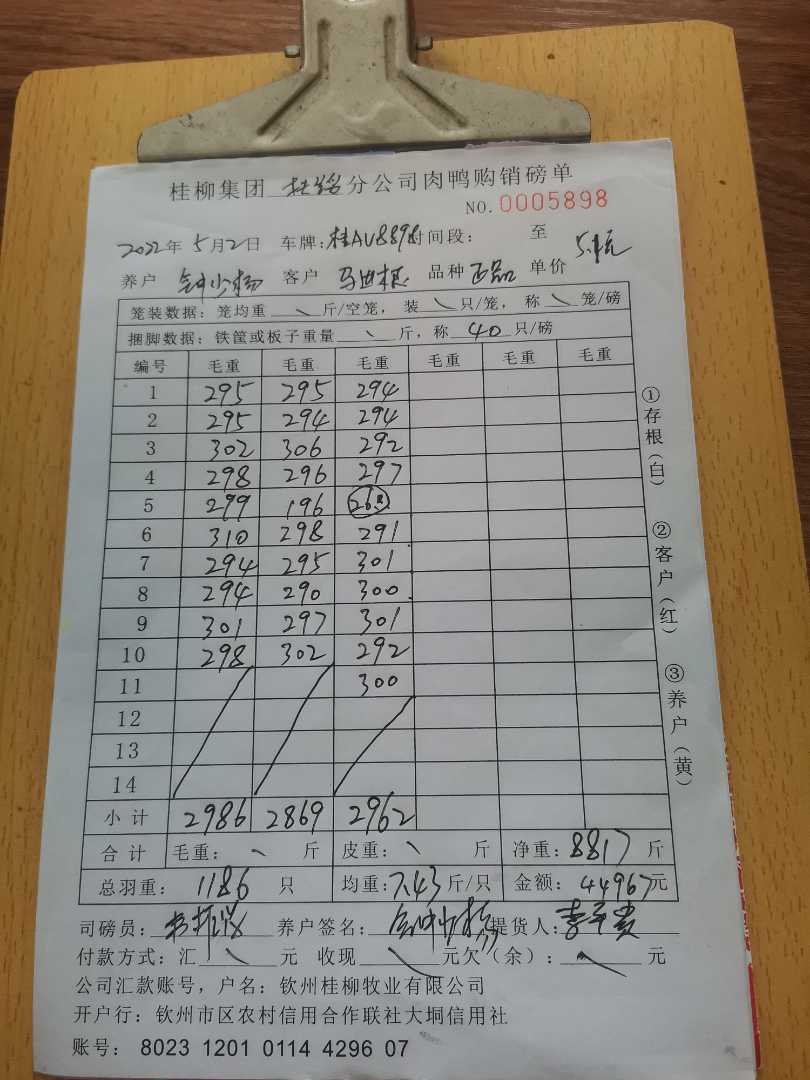 桂柳集团 分公司肉鸭购销磅单
NO.0005898
2022年5月2日 车牌:桂AV8898 时间段: 至
养户 钟少杨 客户 品种 正品 单价
笼装数据: 笼均重 斤/空笼, 装 只/笼, 称 笼/磅
捆脚数据: 铁筐或板子重量 斤, 称 40 只/磅
编号 毛重 毛重 毛重 毛重 毛重 毛重
1 295 295 294
2 295 294 294
3 302 306 292
4 298 296 297
5 299 196
6 310 298 291
7 294 295 301
8 294 290 300
9 301 297 301
10 298 302 292
11 300
12
13
14
小计 2986 2869 2962
合计 毛重: 斤 皮重: 斤 净重: 8817 斤
总羽重: 1186 只 均重: 7.43 斤/只 金额: 44967元
司磅员: 养户签名: 提货人:
付款方式: 汇 元 收现 元欠(余): 元
公司汇款账号, 户名: 钦州桂柳牧业有限公司
开户行: 钦州市区农村信用合作联社大垌信用社
账号: 8023 1201 0114 4296 07
①存根(白)
②客户(红)
③养户(黄)